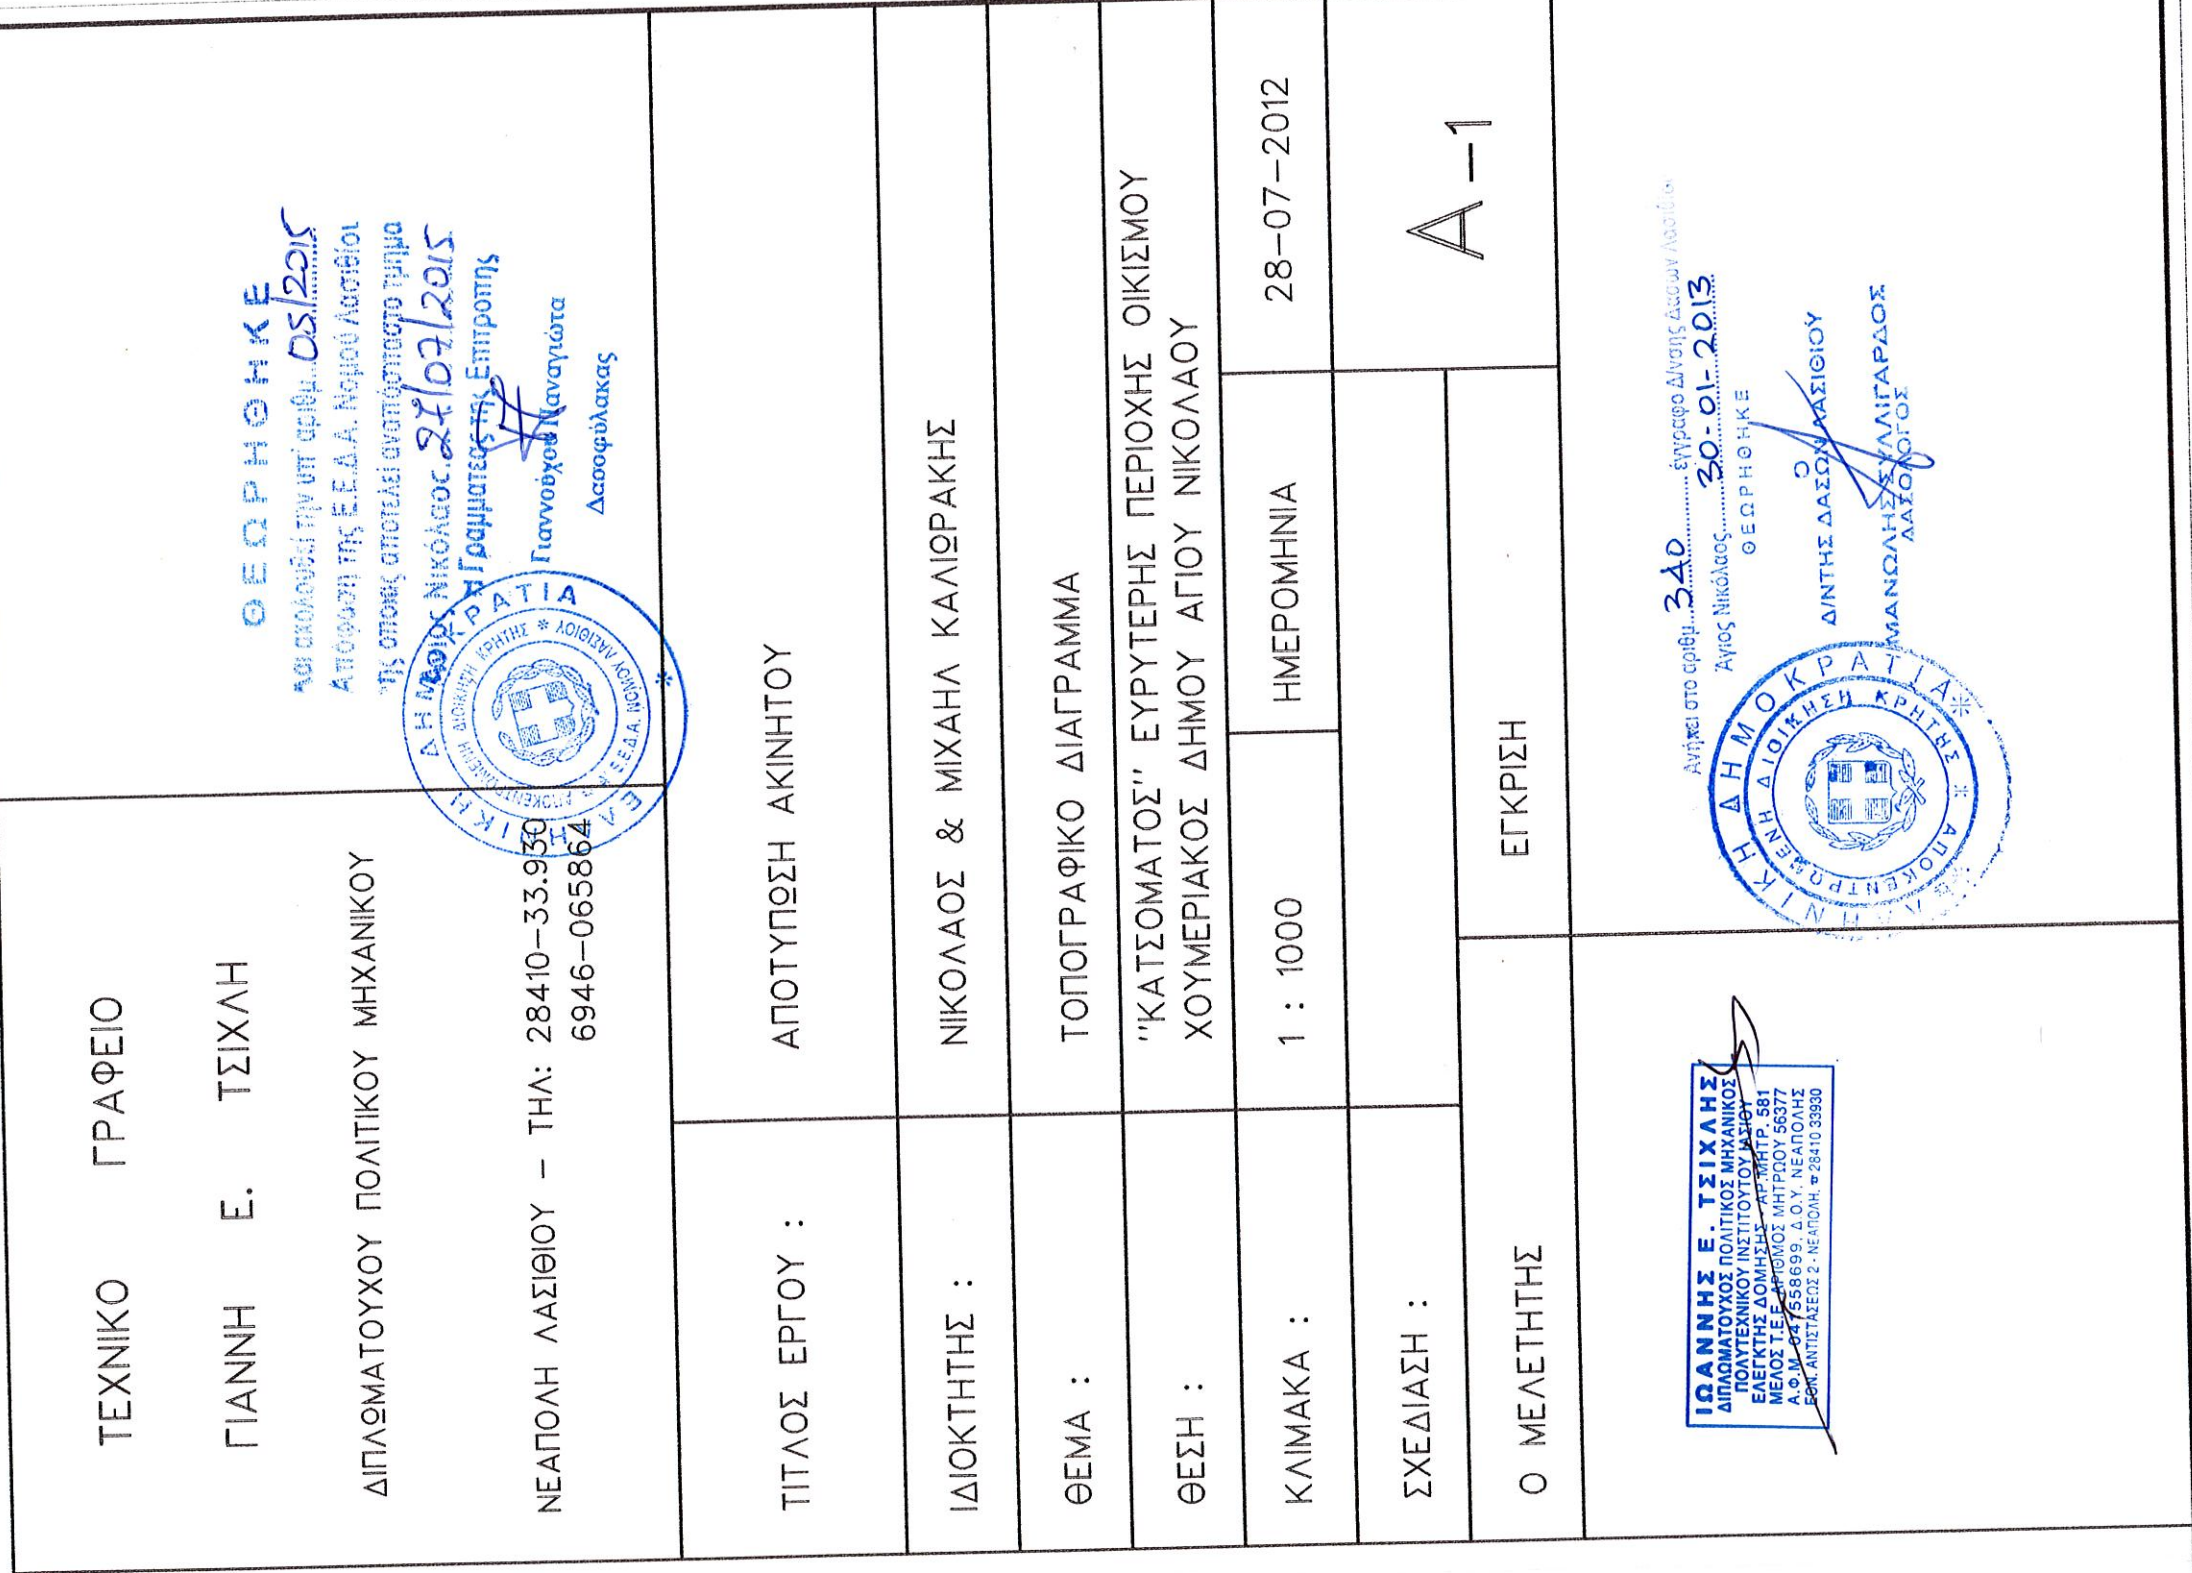 ΤΕΧΝΙΚΟ ΓΡΑΦΕΙΟ
ΓΙΑΝΝΗ Ε. ΤΣΙΧΛΗ
ΔΙΠΛΩΜΑΤΟΥΧΟΥ ΠΟΛΙΤΙΚΟΥ ΜΗΧΑΝΙΚΟΥ
ΝΕΑΠΟΛΗ ΛΑΣΙΘΙΟΥ – ΤΗΛ: 28410–33.930
6946–065864
ΘΕΩΡΗΘΗΚΕ
και ακολουθεί την υπ' αριθμ. 05/2015
Απόφαση της Ε.Ε.Δ.Α. Νομού Λασιθίου
της οποίας αποτελεί αναπόσπαστο τμήμα
Άγιος Νικόλαος 27/07/2015
Η Γραμματέας της Επιτροπής
Γιαννούχου Παναγιώτα
Δασοφύλακας
ΕΛΛΗΝΙΚΗ ΔΗΜΟΚΡΑΤΙΑ
ΑΠΟΚΕΝΤΡΩΜΕΝΗ ΔΙΟΙΚΗΣΗ ΚΡΗΤΗΣ * Ε.Ε.Δ.Α. ΝΟΜΟΥ ΛΑΣΙΘΙΟΥ
ΤΙΤΛΟΣ ΕΡΓΟΥ : ΑΠΟΤΥΠΩΣΗ ΑΚΙΝΗΤΟΥ
ΙΔΙΟΚΤΗΤΗΣ : ΝΙΚΟΛΑΟΣ & ΜΙΧΑΗΛ ΚΑΛΙΩΡΑΚΗΣ
ΘΕΜΑ : ΤΟΠΟΓΡΑΦΙΚΟ ΔΙΑΓΡΑΜΜΑ
ΘΕΣΗ : "ΚΑΤΣΟΜΑΤΟΣ" ΕΥΡΥΤΕΡΗΣ ΠΕΡΙΟΧΗΣ ΟΙΚΙΣΜΟΥ
ΧΟΥΜΕΡΙΑΚΟΣ ΔΗΜΟΥ ΑΓΙΟΥ ΝΙΚΟΛΑΟΥ
ΚΛΙΜΑΚΑ : 1 : 1000 ΗΜΕΡΟΜΗΝΙΑ 28–07–2012
ΣΧΕΔΙΑΣΗ : Α–1
Ο ΜΕΛΕΤΗΤΗΣ ΕΓΚΡΙΣΗ
ΙΩΑΝΝΗΣ Ε. ΤΣΙΧΛΗΣ
ΔΙΠΛΩΜΑΤΟΥΧΟΣ ΠΟΛΙΤΙΚΟΣ ΜΗΧΑΝΙΚΟΣ
ΠΟΛΥΤΕΧΝΙΚΟΥ ΙΝΣΤΙΤΟΥΤΟΥ ΙΑΣΙΟΥ
ΕΛΕΓΚΤΗΣ ΔΟΜΗΣΗΣ - ΑΡ.ΜΗΤΡ. 581
ΜΕΛΟΣ Τ.Ε.Ε. ΑΡΙΘΜΟΣ ΜΗΤΡΩΟΥ 56377
Α.Φ.Μ. 047558699, Δ.Ο.Υ. ΝΕΑΠΟΛΗΣ
ΕΘΝ. ΑΝΤΙΣΤΑΣΕΩΣ 2 - ΝΕΑΠΟΛΗ, ☎ 28410 33930
Ανήκει στο αριθμ. 340 έγγραφο Δ/νσης Δασών Λασιθίου
Άγιος Νικόλαος 30-01-2013
ΘΕΩΡΗΘΗΚΕ
Ο
Δ/ΝΤΗΣ ΔΑΣΩΝ ΛΑΣΙΘΙΟΥ
ΜΑΝΩΛΗΣ ΞΥΛΛΙΓΑΡΔΟΣ
ΔΑΣΟΛΟΓΟΣ
ΕΛΛΗΝΙΚΗ ΔΗΜΟΚΡΑΤΙΑ
ΑΠΟΚΕΝΤΡΩΜΕΝΗ ΔΙΟΙΚΗΣΗ ΚΡΗΤΗΣ